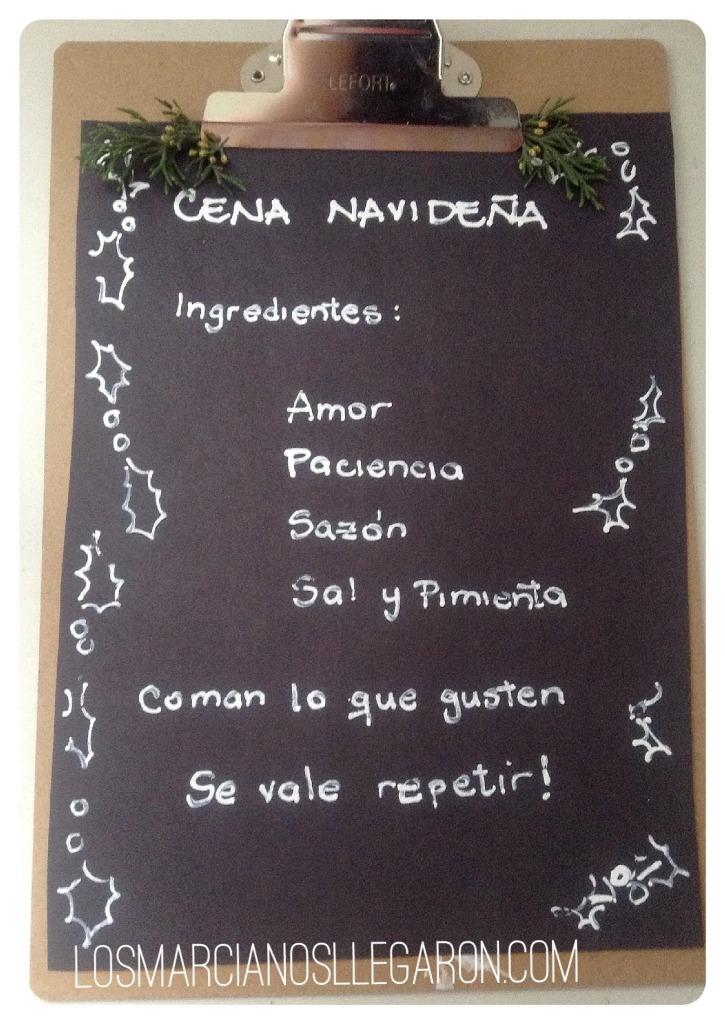 LEFORT
CENA NAVIDEÑA
Ingredientes:
Amor
Paciencia
Sazón
Sal y Pimienta
Coman lo que gusten
Se vale repetir!
LOSMARCIANOSLLEGARON.COM